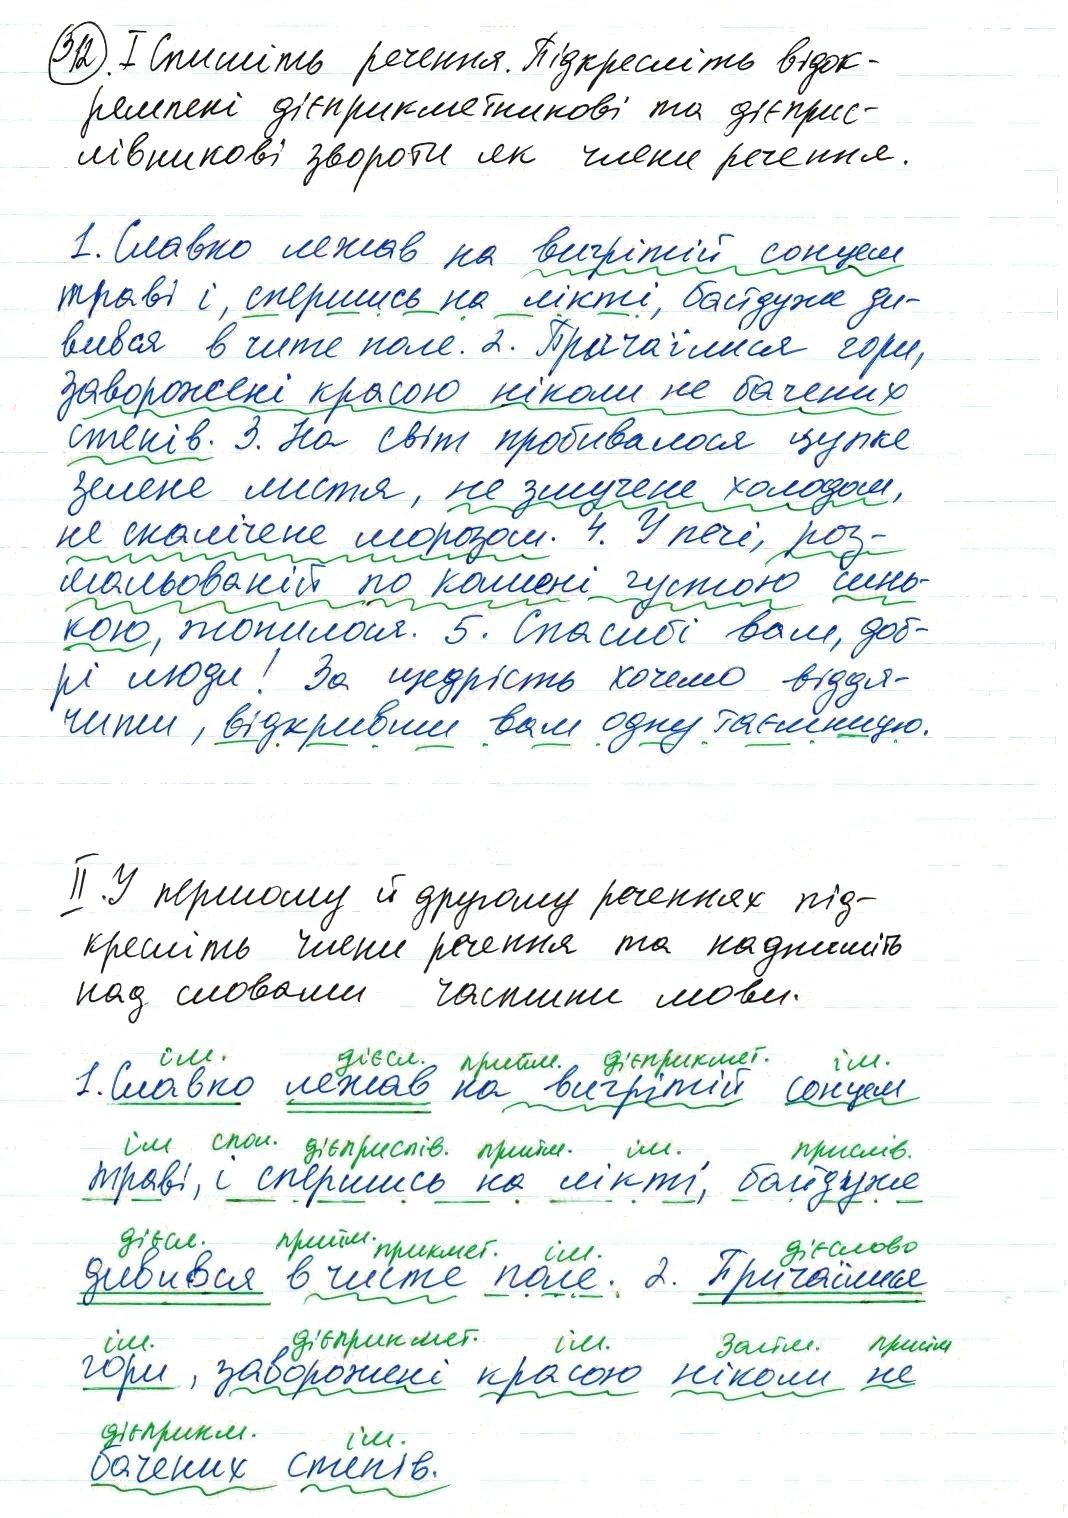 312. I Спишіть речення. Підкресліть відок-
ремлені дієприкметникові та дієприс-
лівникові звороти як члени речення.
1. Славко лежав на вигрітій сонцем
траві і, спершись на лікті, байдуже ди-
вився в чисте поле. 2. Причаїлися гори,
заворожені красою ніколи не бачених
степів. 3. На світ пробивалося цупке
зелене листя, не змучене холодом,
не скалічене морозом. 4. У печі, роз-
мальованій по комені густою синь-
кою, топилося. 5. Спасибі вам, доб-
рі люди! За щедрість хочемо віддя-
чити, відкривши вам одну таємницю.
II. У першому й другому реченнях під-
кресліть члени речення та надпишіть
над словами частини мови.
ім. дієсл. прийм. дієприкмет. ім.
1. Славко лежав на вигрітій сонцем
ім спол. дієприслів. прийм. ім. прислів.
траві, і спершись на лікті, байдуже
дієсл. прийм. прикмет. ім. дієслово
дивився в чисте поле. 2. Причаїлися
ім. дієприкмет. ім. Займ. прийм
гори, заворожені красою ніколи не
дієприкм. ім.
бачених степів.